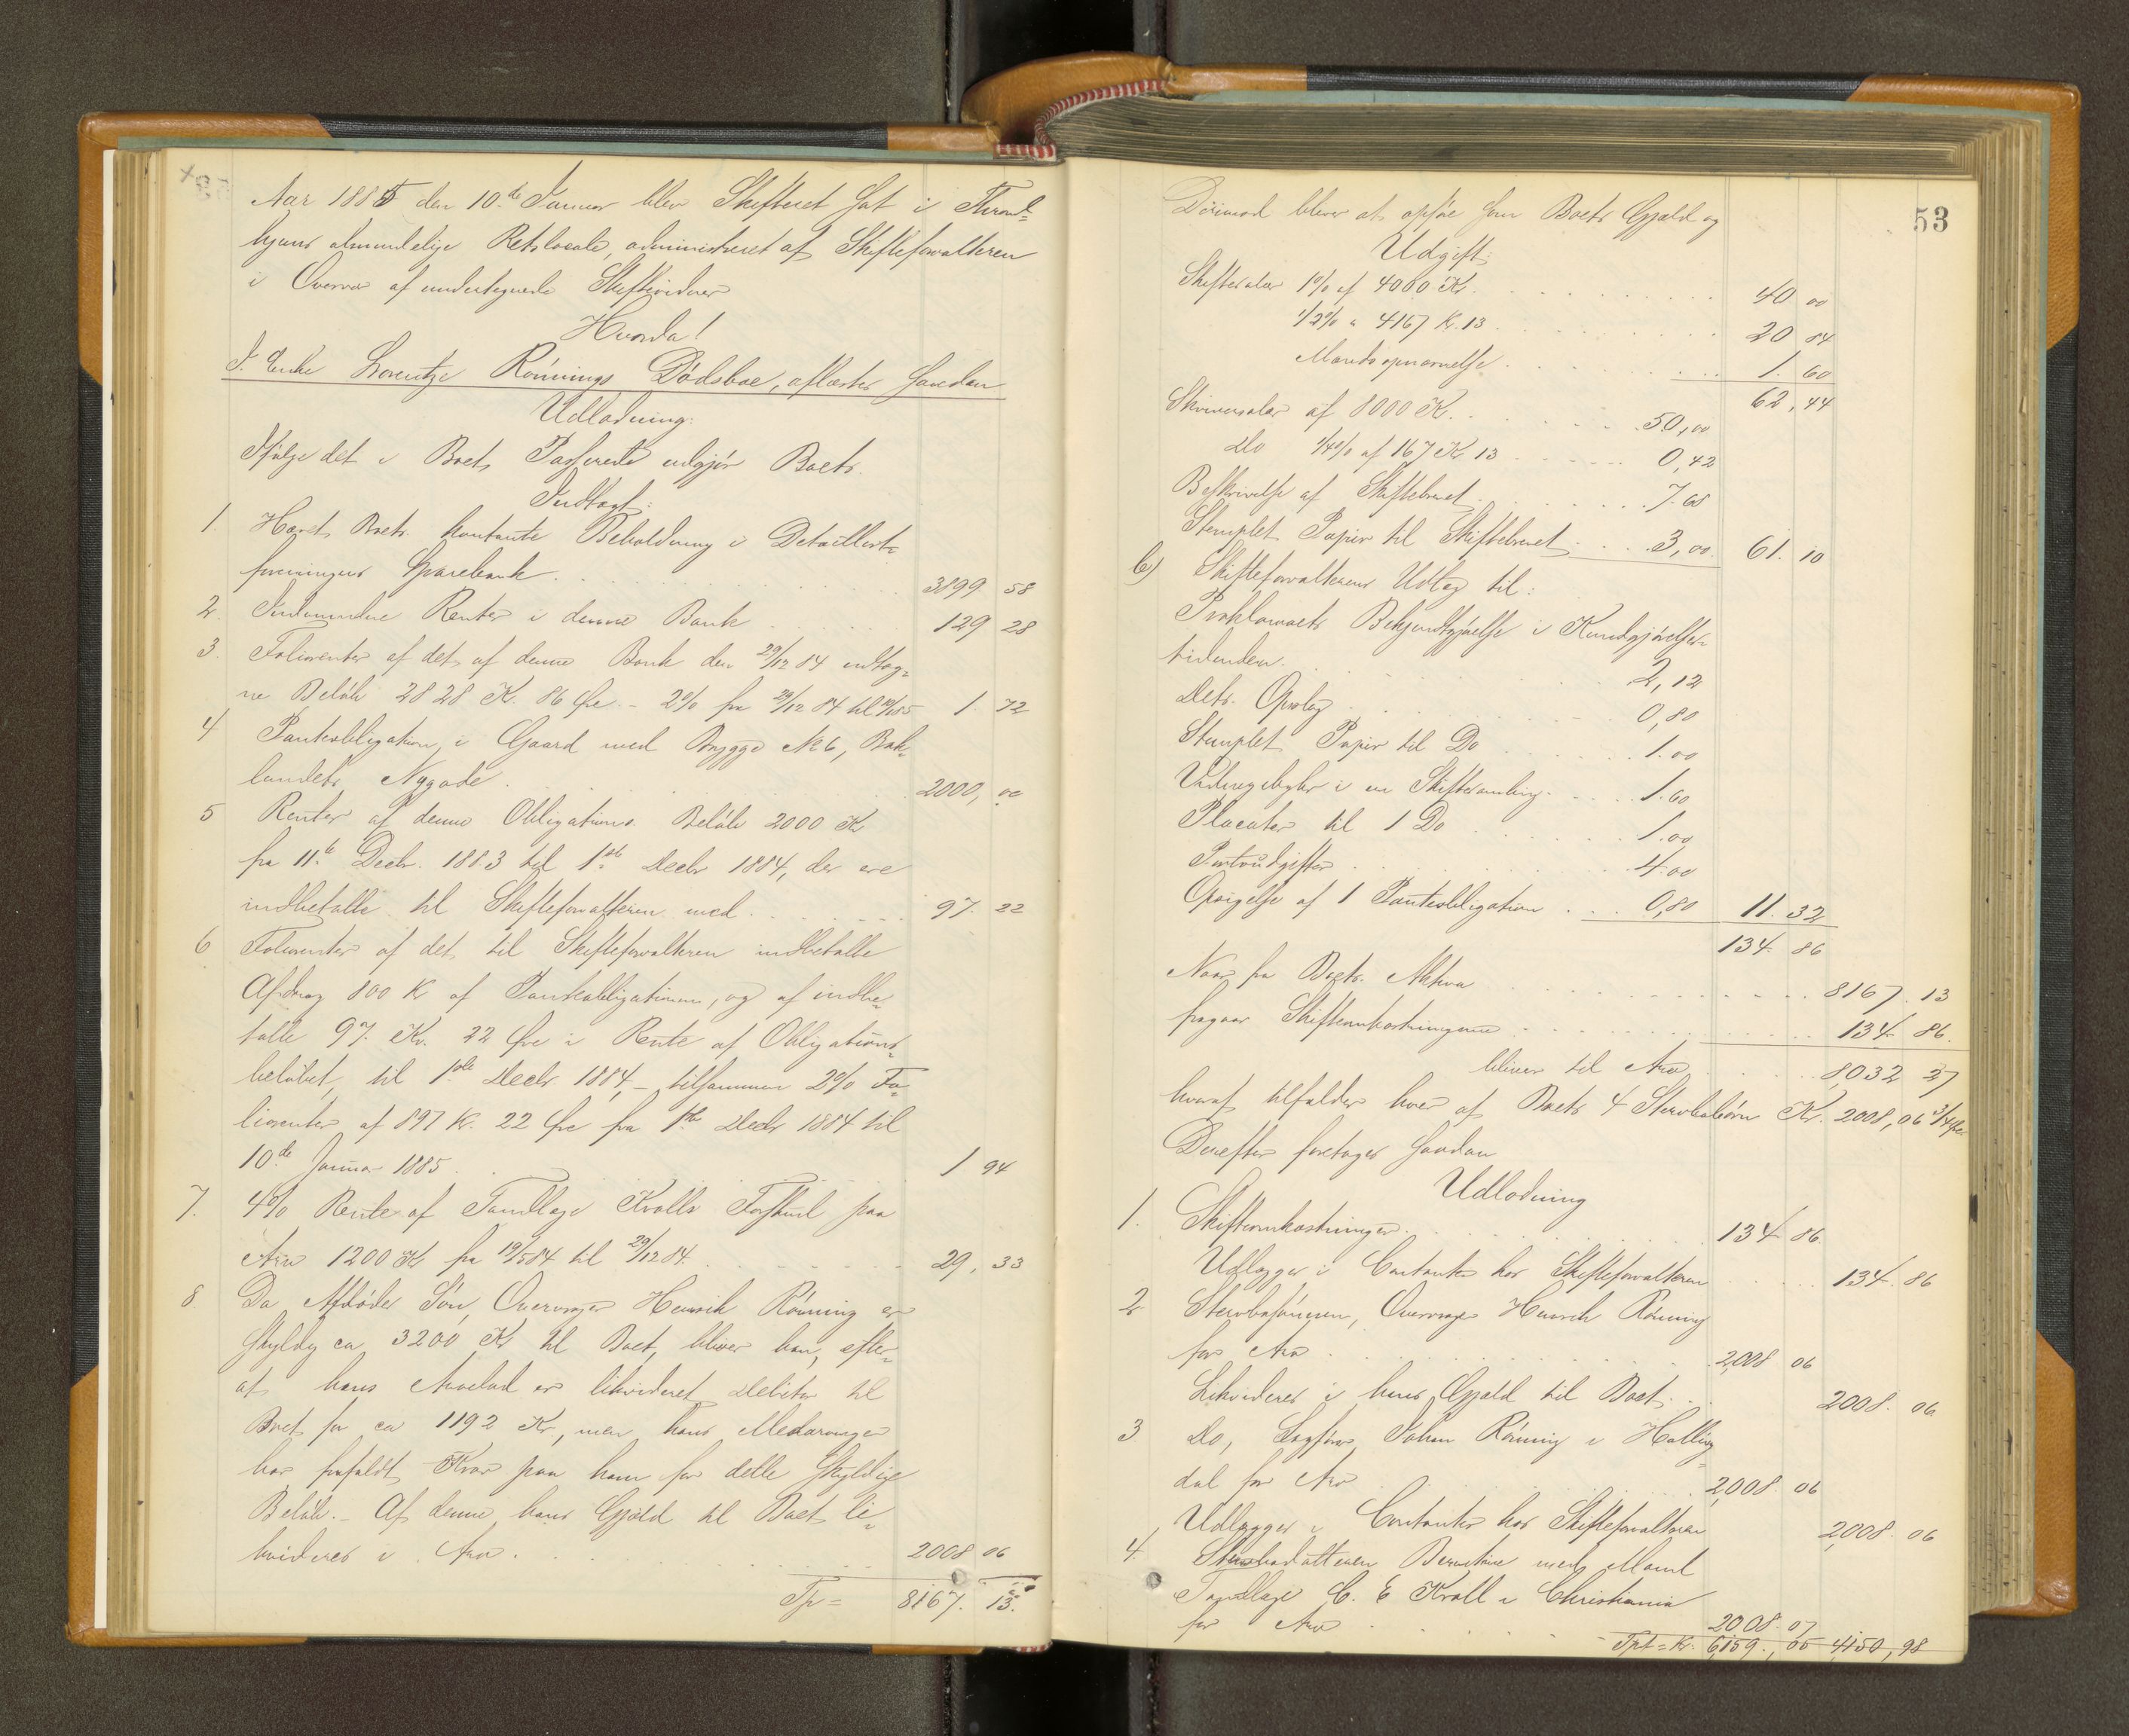 Aar 1885 den 10.de Januar blev Skifteret sat i Thrond=
hjems almindelige Retslocale, administreret af Skifteforvalteren
i Overvær af undertegnede Skiftevidner
Hvorda!
I Enke Lorentze Rönnings Dödsboe, aflæstes saadan
Udlodning:
Ifølge det i Boet Passerede udgjør Boets
Indtægt:
1. Havet Boets kontante Beholdning i Detaillist=
foreningens Sparebank . . . 3899 58
2. Indvundne Renter i denne Bank . . . 129 28
3. Foliorenter af det af denne Bank den 29/12 84 udtag=
ne Beløb 2828 K. 86 Øre - 2% fra 29/12 84 til 10/1 85 1. 72
4 Panteobligation i Gaard med Brygge No 6, Bak=
landets Nygade . . . 2000, 00
5 Renter af denne Obligations Beløb 2000 Kr
fra 11.te Decbr. 1883 til 1ste Decbr 1884, der ere
indbetalte til Skifteforvalteren med . . . 97. 22
6 Foliorenter af det til Skifteforvalteren indbetalte
Afdrag 800 Kr af Panteobligationen, og af indbe=
talte 97 Kr. 22 Øre i Rente af Obligations=
beløbet, til 1ste Decbr 1884, - tilsammen 2% Fo=
liorenter af 897 Kr. 22 Øre fra 1ste Decbr 1884 til
10.de Januar 1885 . . . 1 94
7. 4% Rente af Tandlæge Krolls Forskud paa
Arv 1200 Kr fra 19/5 84 til 29/12 84. . . . 29, 33
8 Da Afdödes Sön, Overvrager Henrik Rönning er
skyldig ca 3200 Kr til Boet, bliver han, efter=
at hans Arvelod er likvideret Debitor til
Boet for ca 1192 Kr, men hans Medarvinger
har frafaldt Krav paa ham for dette skyldige
Beløb. - Af denne hans Gjæld til Boet li=
kvideres i Arv . . . 2008 06
Tp = 8167. 13.
53
Derimod bliver at opföre som Boets Gjæld og
Udgift:
Skiftesalær 1% af 4000 Kr . . . 40 00
1/2% a 4167 K. 13 . . . 20 84
Mandsopnævnelse . . . 1. 60
62, 44
Skriversalær af 8000 K. . . . 50,00
Do 1/4% af 167 Kr 13 . . . 0,42
Beskrivelse af Skiftebrevet . . . 7.68
Stemplet Papir til Skiftebrevet . . . 3,00. 61. 10
b) Skifteforvalterens Udlæg til:
Proklamaets Bekjendtgjörelse i Kundgjörelses=
tidenden . . . 2,12
Dets Opslag . . . 0,80
Stemplet Papir til Do . . . 1.00
Vidnegebyhr i en Skiftesamling . . . 1.60
Placater til 1 Do . . . 1.00
Portoudgifter . . . 4.00
Opsigelse af 1 Panteobligation . . . 0,80 11. 32
134. 86
Naar fra Boets Aktiva . . . 8167. 13
fragaar Skifteomkostningerne . . . 134. 86.
bliver til Arv . . . 8,032 27
hvoraf tilfalder hver af Boets 4 Stervbobørn Kr. 2008,06 3/4 Øre
Derefter foretages saadan
Udlodning
1. Skifteomkostninger . . . 134 86.
Udlægges i Contanter hos Skifteforvalteren . . . 134. 86
2 Stervbosönnen, Overvrager Henrik Rönning
for Arv . . . 2,008 06
Likvideres i hans Gjæld til Boet . . . 2008. 06
3 Do, Sagförer Johan Rönning i Halling=
dal for Arv . . . 2,008. 06
Udlægges i Contanter hos Skifteforvalteren 2,008. 06
4. Stervbodatteren Berntine med Mand
Tandlæge C. E Kroll i Christiania
for Arv . . . 2008. 07
Tpt = Kr. 6,159., 05 4,150, 98